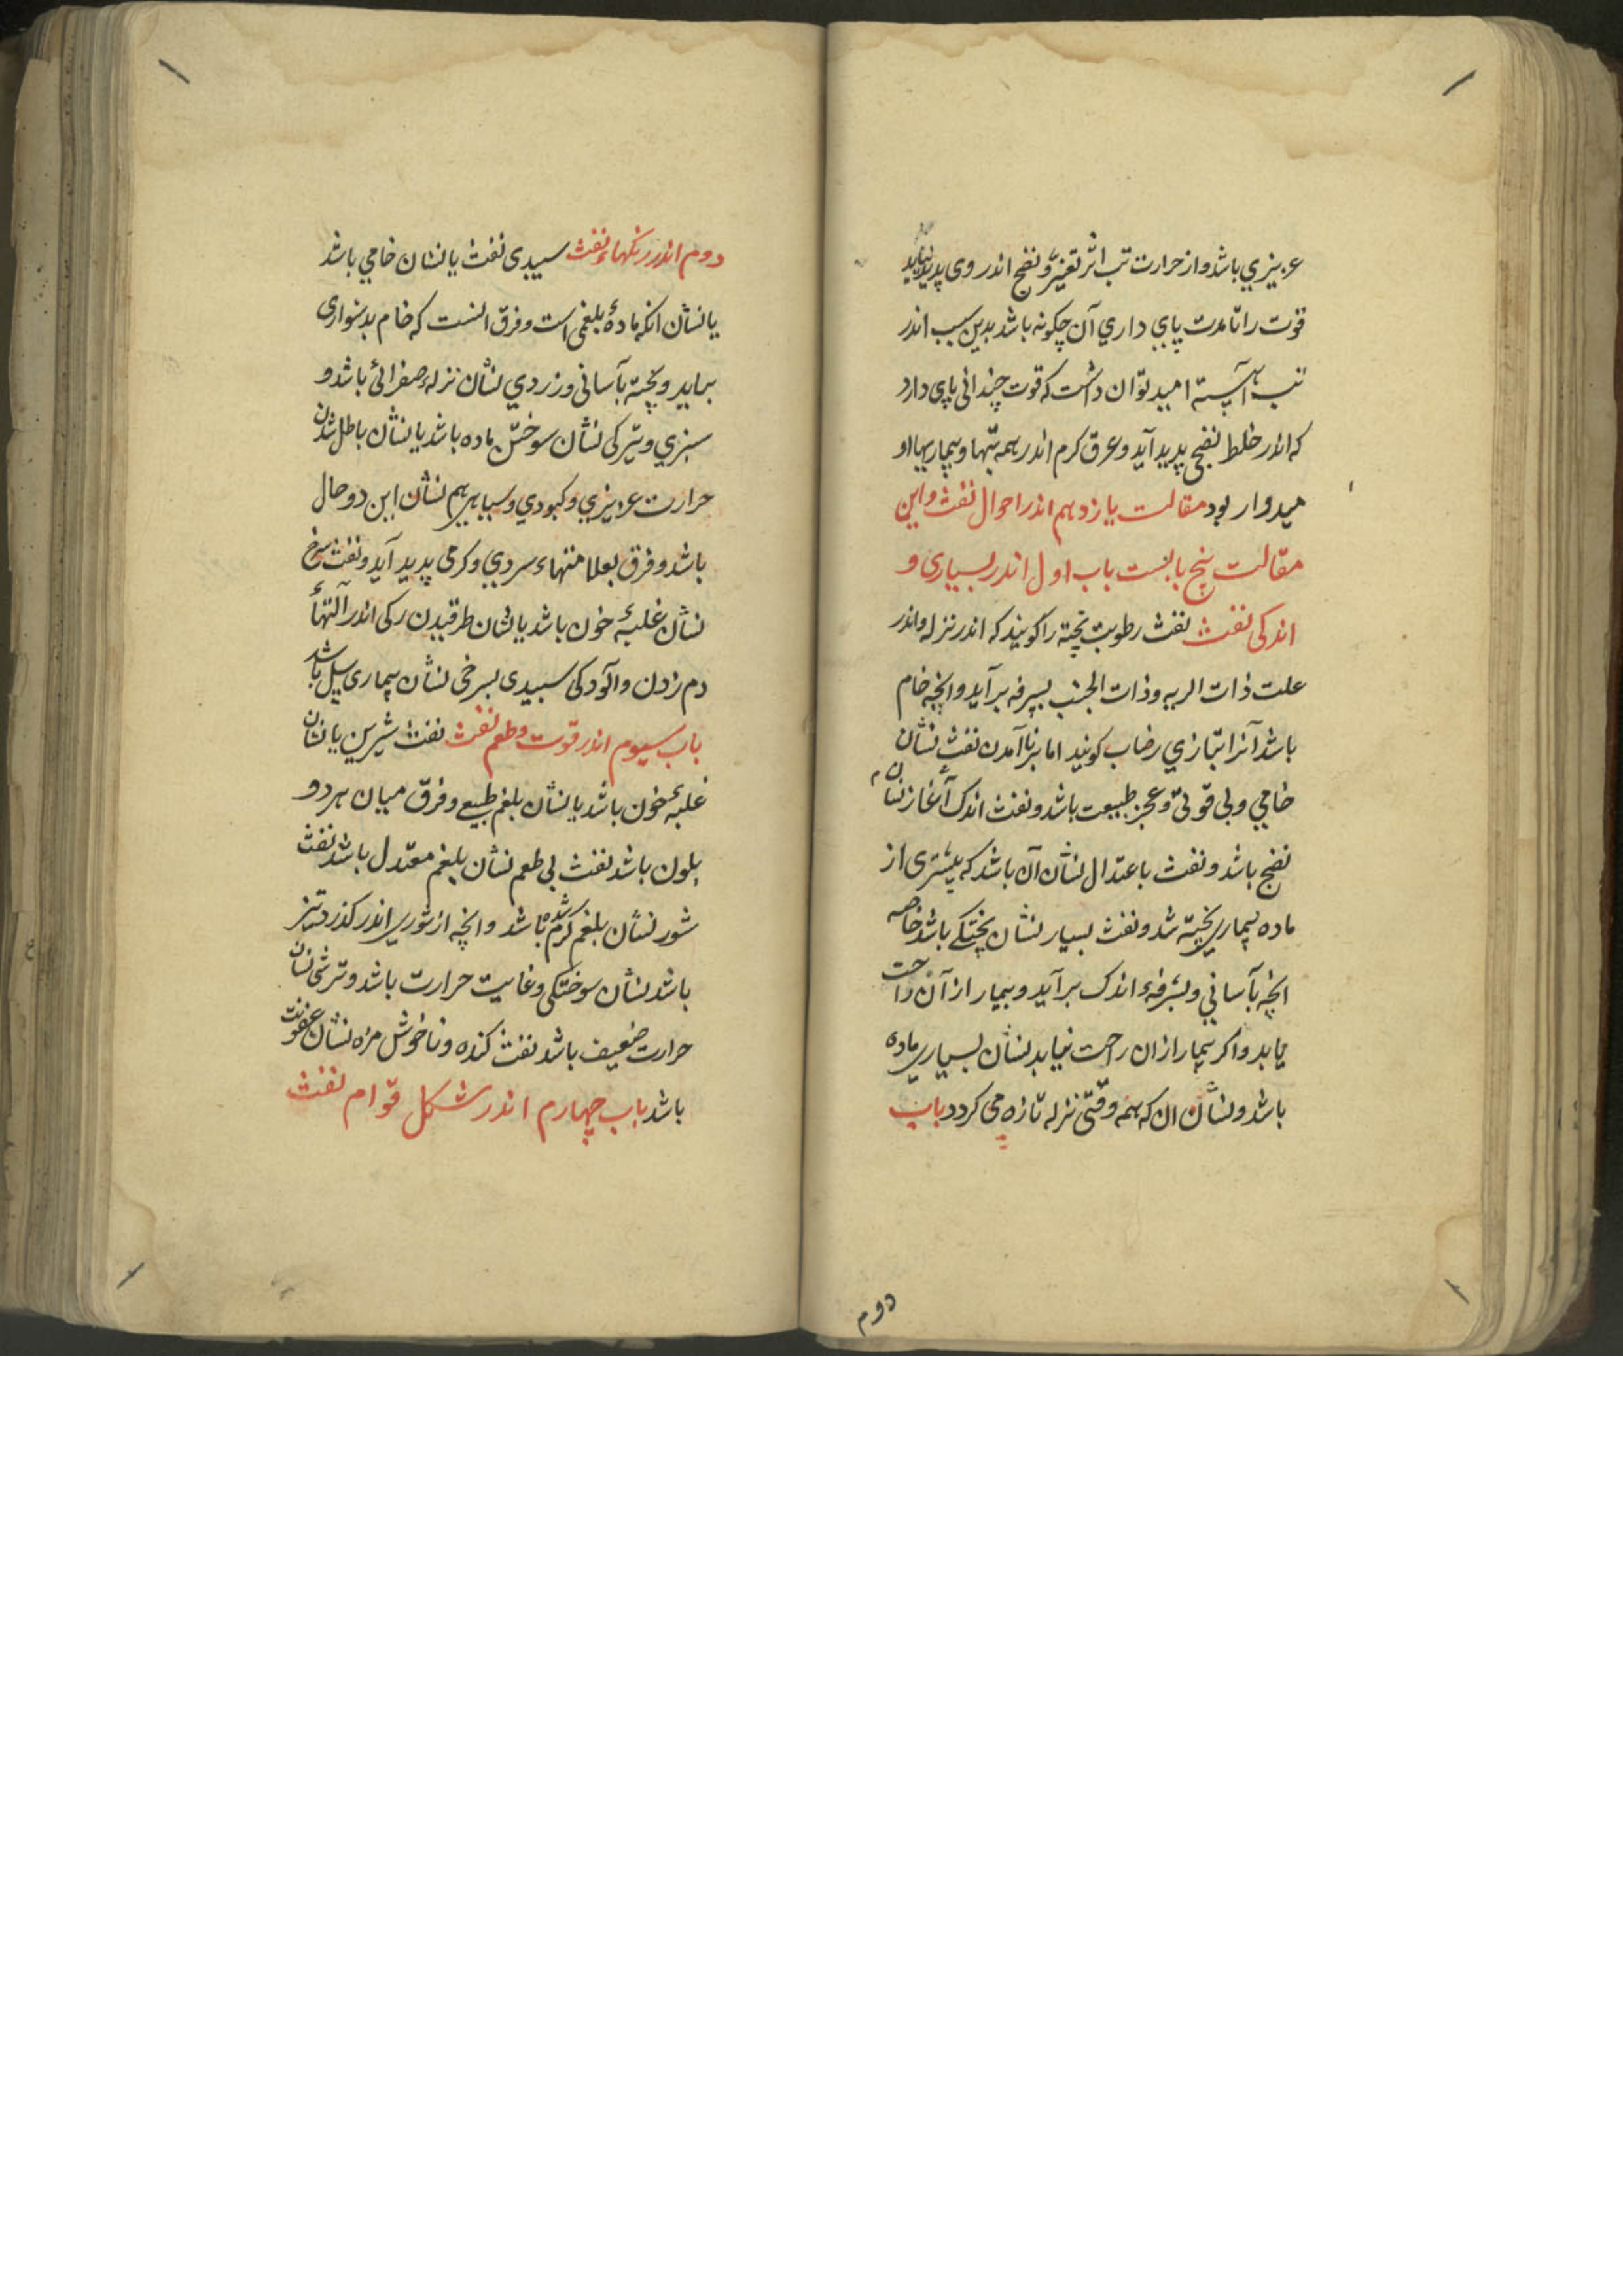 عزیزي باشد و از حرارت تب اثر تغیّر و نضج اندر وی پدید نیاید
قوّت را تا مدت پایي داري آن چگونه باشد بدین سبب اندر
تب آهسته امید توان داشت که قوت چندانی پای دارد
که اندر خلط نضجی پدید آید و عرق کرم اندر همه تبها و بیماریها او
میدوار بود مقالت یازدهم اندر احوال نفث و این
مقالت پنج بابست باب اول اندر بسیاری و
اندکی نفث نفث رطوبت پخته را کویند که اندر نزله و اندر
علت ذات الریه و ذات الجنب بسرفه برآید و انچه خام
باشد آنرا بتازي رضاب کویند اما برنا آمدن نفث نشان
خامي و بی قوتی و عجز طبیعت باشد و نفث اندک آغاز نشان
نضج باشد و نفث باعتدال نشان آن باشد که بیشتری از
ماده بیماری پخته شد و نفث بسیار نشان پختکے باشد خاصه
انچه بآساني و بسرفهٔ اندک برآید و بیمار از آن راحت
یابد و اکر بیمار ازان راحت نیابد نشان بسیاري ماده
باشد و نشان ان که همه وقتی نزله تازه می کردد باب
دوم
دوم اندر رنکهاء نفث سپیدی نفث یا نشان خامي باشد
یا نشان انکه مادهٔ بلغمی است و فرق انست که خام بدشواری
براید و پخته بآسانی و زردي نشان نزلهٔ صفرائی باشد و
سبزي و تیرکی نشان سوختن ماده باشد یا نشان باطل شدن
حرارت عزیزي و کبودي و سیاهی هم نشان این دو حال
باشد و فرق بعلامتهاء سردي و کرمی پدید آید و نفث سرخ
نشان غلبهٔ خون باشد یا نشان طرقیدن رکی اندر آلتهاء
دم زدن و آلودکی سپیدی بسرخی نشان بیماری سل باشد
باب سیوم اندر قوت و طعم نفث نفث شیرین یا نشان
غلبهٔ خون باشد یا نشان بلغم طبیعے و فرق میان هر دو
بلون باشد نفث بی طعم نشان بلغم معتدل باشد نفث
شور نشان بلغم کرم شده باشد و انچه از شوري اندر کذرد تیز
باشد نشان سوختکی و غایت حرارت باشد و ترشی نشان
حرارت ضعیف باشد نفث کنده و ناخوش مزه نشان عفونت
باشد باب چهارم اندر شکل قوام نفث